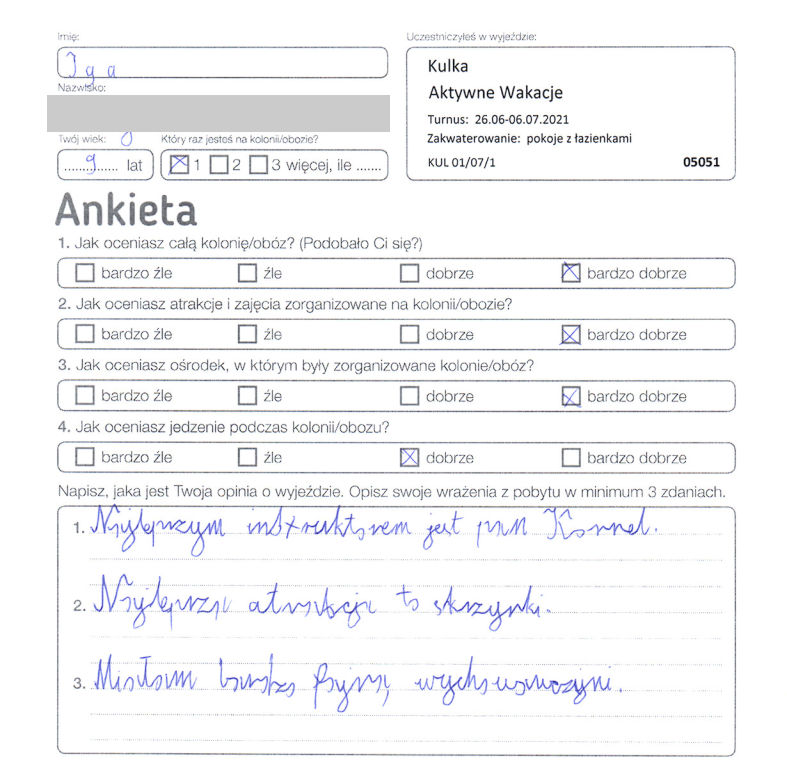 Imię:
Iga
Nazwisko:
Twój wiek:
9 lat
Który raz jesteś na kolonii/obozie?
1 2 3 więcej, ile .......
Uczestniczyłeś w wyjeździe:
Kulka
Aktywne Wakacje
Turnus: 26.06-06.07.2021
Zakwaterowanie: pokoje z łazienkami
KUL 01/07/1 05051
Ankieta
1. Jak oceniasz całą kolonię/obóz? (Podobało Ci się?)
bardzo źle źle dobrze bardzo dobrze
2. Jak oceniasz atrakcje i zajęcia zorganizowane na kolonii/obozie?
bardzo źle źle dobrze bardzo dobrze
3. Jak oceniasz ośrodek, w którym były zorganizowane kolonie/obóz?
bardzo źle źle dobrze bardzo dobrze
4. Jak oceniasz jedzenie podczas kolonii/obozu?
bardzo źle źle dobrze bardzo dobrze
Napisz, jaka jest Twoja opinia o wyjeździe. Opisz swoje wrażenia z pobytu w minimum 3 zdaniach.
1. Najlepszym instruktorem jest pan Kornel.
2. Najlepsza atrakcja to skrzynki.
3. Miałam bardzo fajną wychowawczyni.